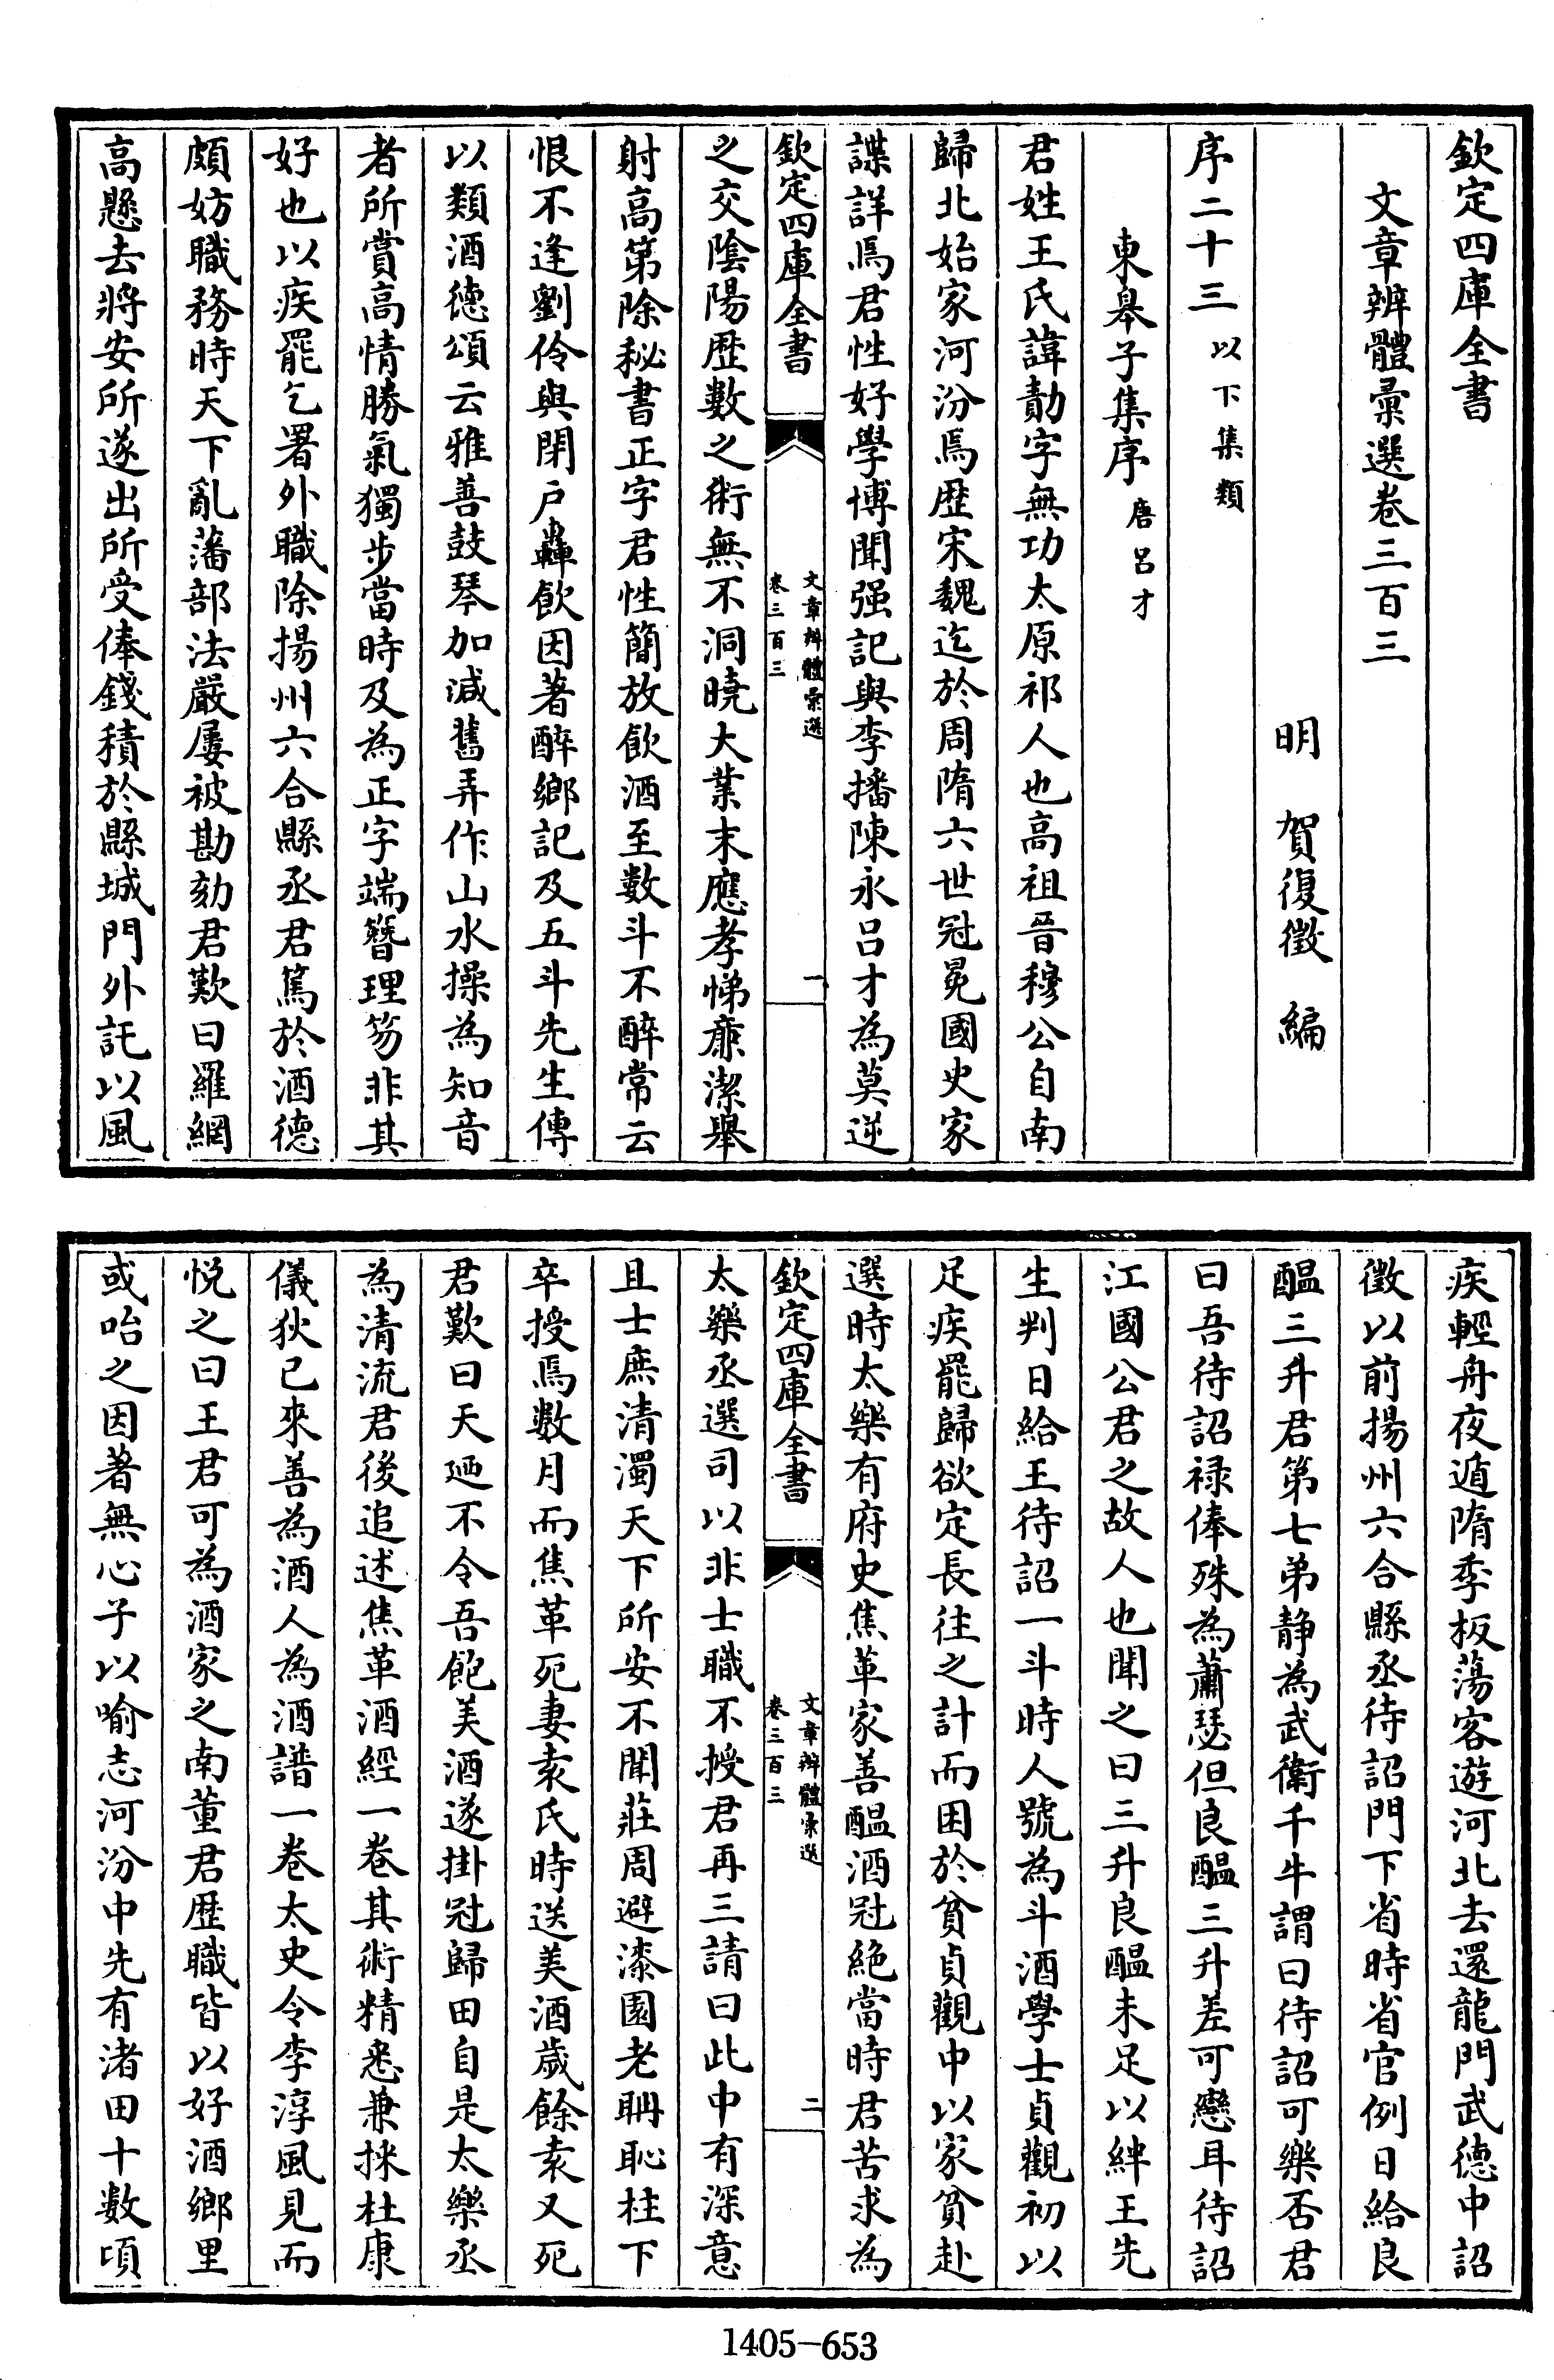 欽定四庫全書
文章辨體彙選卷三百三
明 賀復徵 編
序二十三以下集類
東皋子集序唐呂才
君姓王氏諱勣字無功太原祁人也高祖晉穆公自南
歸北始家河汾焉歴宋魏迄於周隋六世冠冕國史家
諜詳焉君性好學博聞强記與李播陳永呂才為莫逆
欽定四庫全書
文章辨體彙選
卷三百三
一
之交陰陽歴數之術無不洞曉大業末應孝悌亷潔舉
射高第除秘書正字君性簡放飲酒至數斗不醉常云
恨不逢劉伶與閉户轟飲因著醉鄉記及五斗先生傳
以類酒徳頌云雅善鼓琴加減舊弄作山水操為知音
者所賞高情勝氣獨步當時及為正字端簪理笏非其
好也以疾罷乞署外職除揚州六合縣丞君篤於酒德
頗妨職務時天下亂藩部法嚴屢被勘劾君歎曰羅網
高懸去將安所遂出所受俸錢積於縣城門外託以風
疾輕舟夜遁隋季板蕩客遊河北去還龍門武德中詔
徵以前揚州六合縣丞待詔門下省時省官例日給良
醖三升君第七弟静為武衛千牛謂曰待詔可樂否君
曰吾待詔禄俸殊為蕭瑟但良醖三升差可戀耳待詔
江國公君之故人也聞之曰三升良醖未足以絆王先
生判日給王待詔一斗時人號為斗酒學士貞觀初以
足疾罷歸欲定長往之計而困於貧貞觀中以家貧赴
選時太樂有府史焦革家善醖酒冠絶當時君苦求為
欽定四庫全書
文章辨體彙選
卷三百三
二
太樂丞選司以非士職不授君再三請曰此中有深意
且士庶清濁天下所安不聞莊周避漆園老聃恥柱下
卒授焉數月而焦革死妻袁氏時送美酒歲餘袁又死
君歎曰天廼不令吾飽美酒遂掛冠歸田自是太樂丞
為清流君後追述焦革酒經一卷其術精悉兼採杜康
儀狄已來善為酒人為酒譜一卷太史令李淳風見而
悦之曰王君可為酒家之南董君歴職皆以好酒鄉里
或咍之因著無心子以喻志河汾中先有渚田十數頃
1405-653